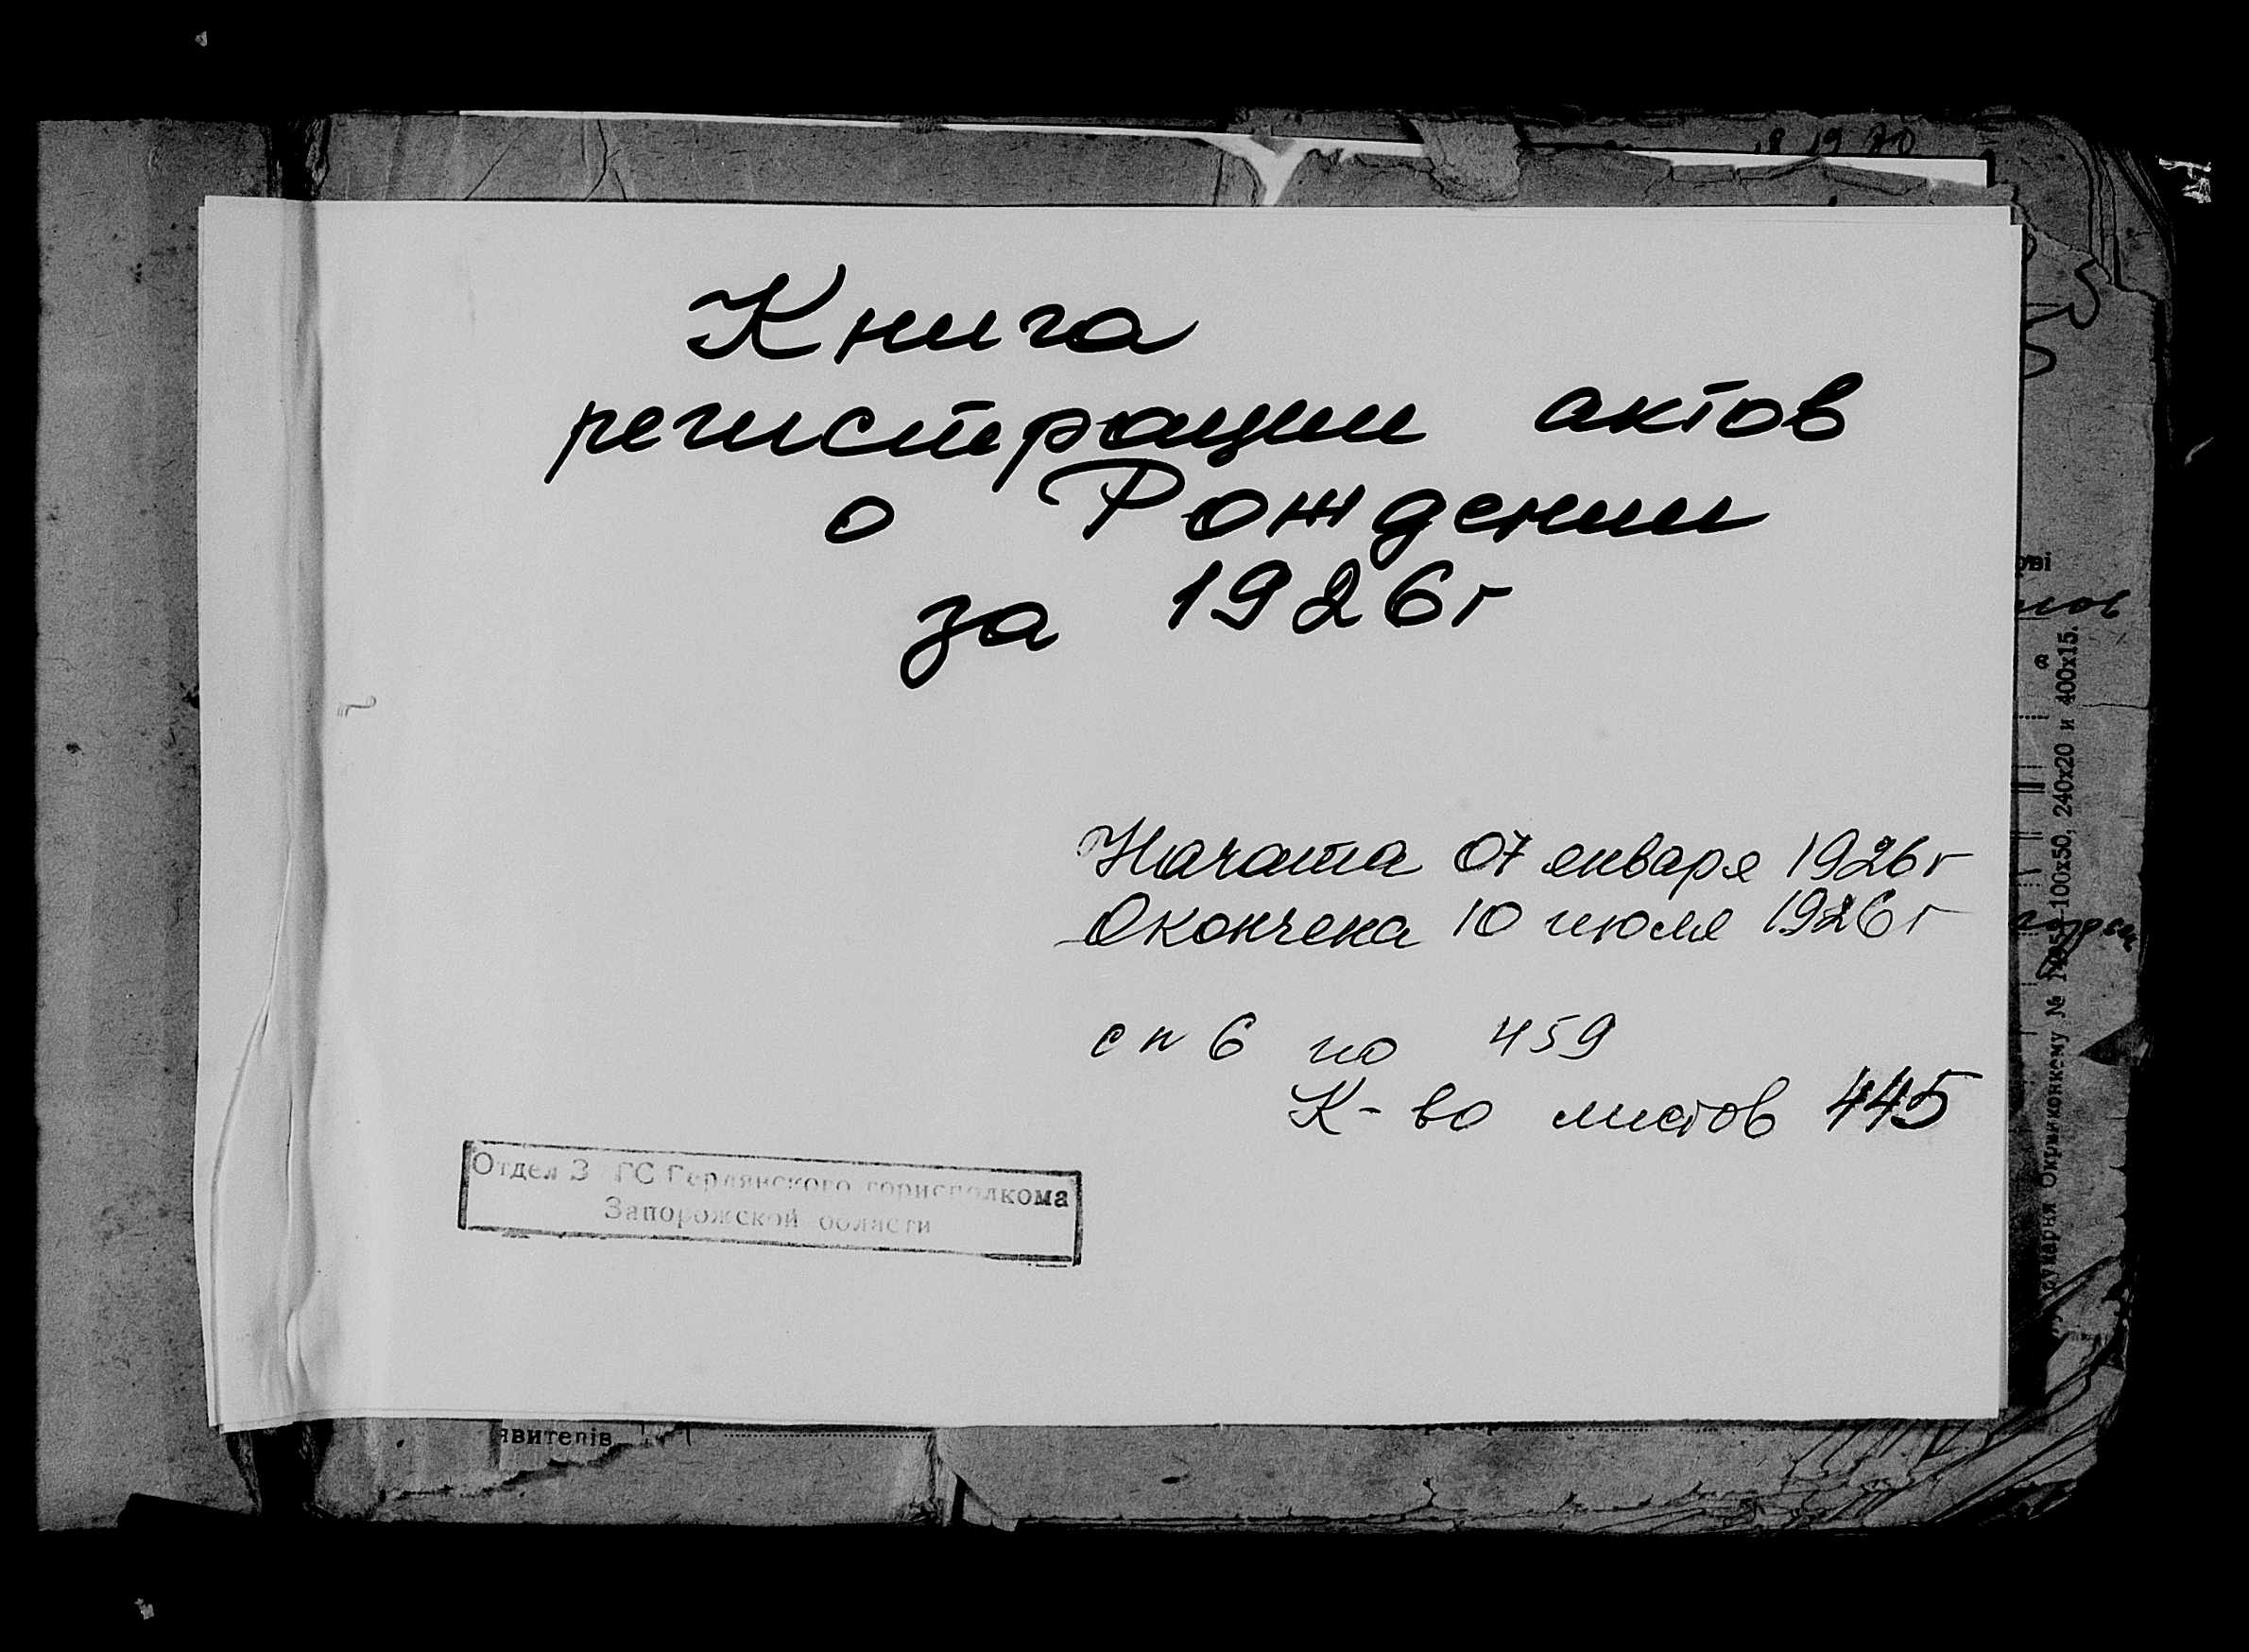 Книга
регистрации актов
о Рождении
за 1926г
Начата 07 января 1926г
Окончена 10 июля 1926г
с n 6 по 459
К-во листов 445
Отдел З ГС Бердянского горисполкома
Запорожской области
явителів
Окрвиконкому № 100х50, 240х20 и 400х15.